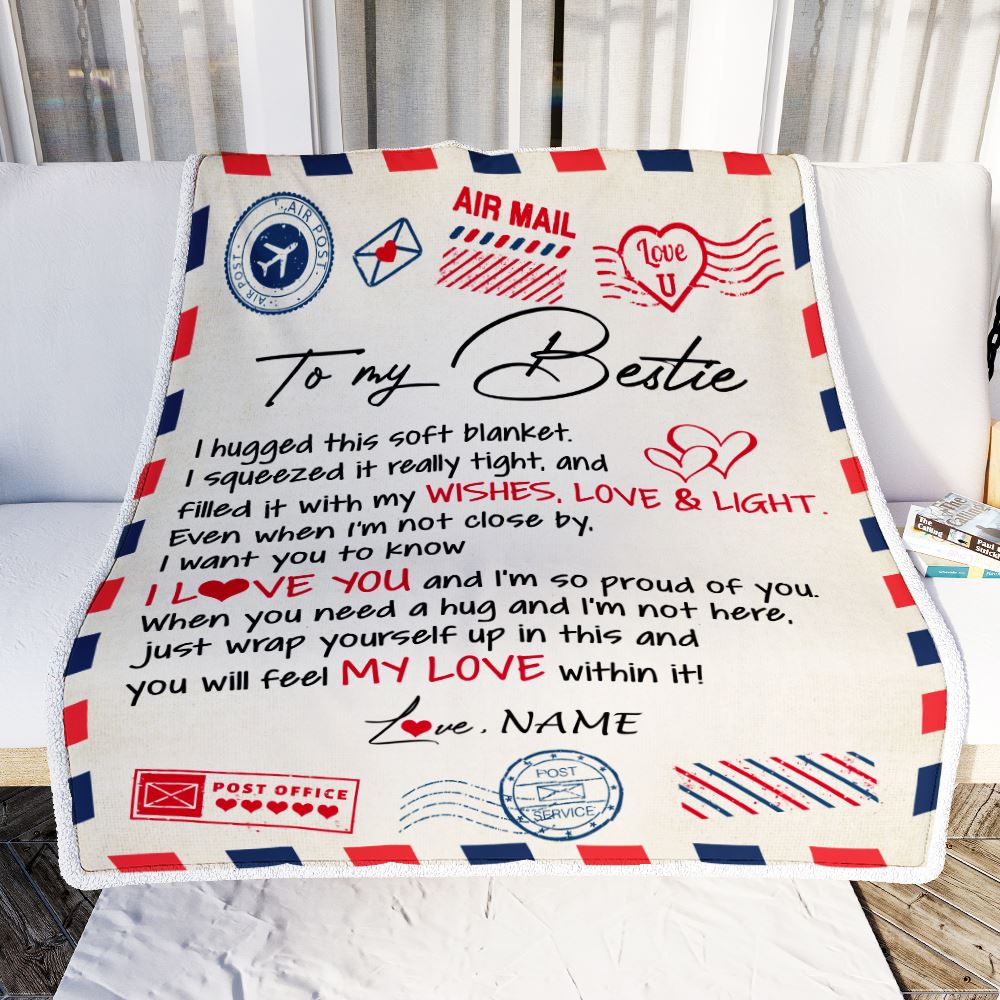 AIR POST
AIR POST
AIR MAIL
Love
U
To my Bestie
I hugged this soft blanket.
I squeezed it really tight, and
filled it with my WISHES, LOVE & LIGHT.
Even when I'm not close by,
I want you to know
I LOVE YOU and I'm so proud of you.
When you need a hug and I'm not here,
just wrap yourself up in this and
you will feel MY LOVE within it!
Love, NAME
POST OFFICE
POST
SERVICE
The
Calling